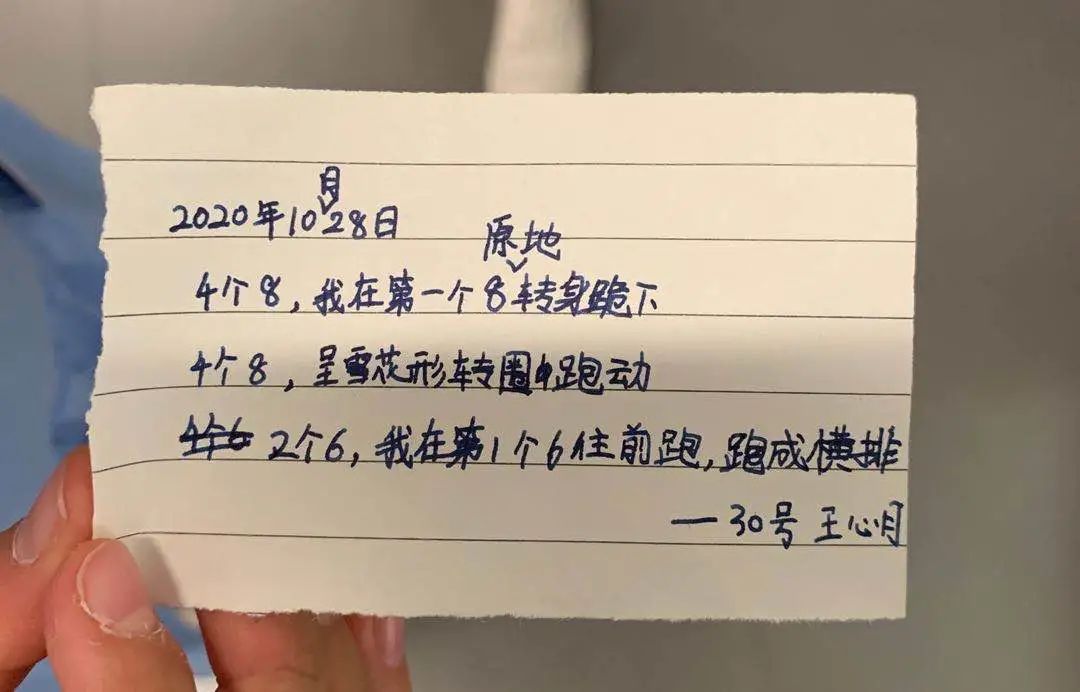 2020年10月28日
4个8，我在第一个8原地转身跪下
4个8，呈雪花形转圈跑动
2个6，我在第1个6往前跑，跑成横排
—30号 王心月